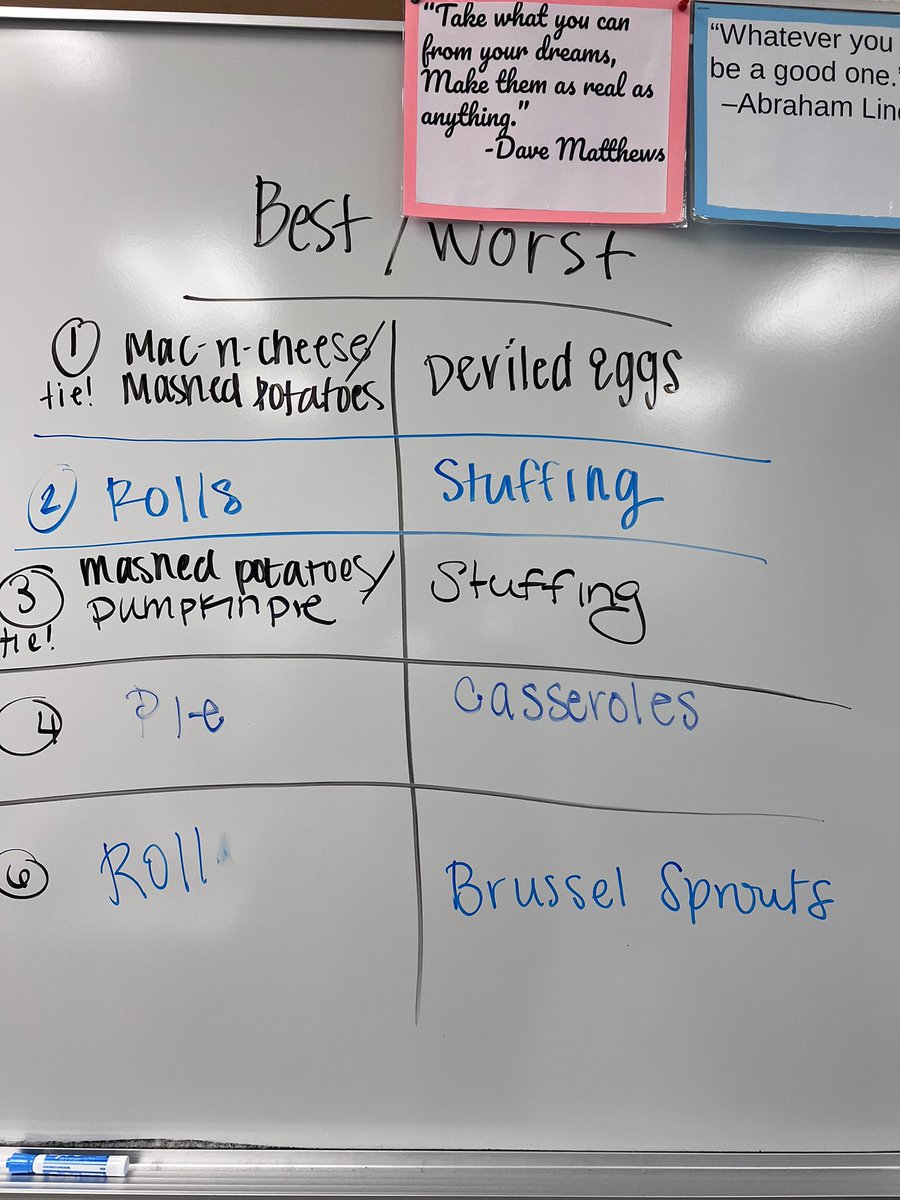 "Take what you can
from your dreams,
Make them as real as
anything."
-Dave Matthews
"Whatever you
be a good one."
–Abraham Linc
Best / Worst
1 Mac-n-cheese/ Deviled eggs
tie! Mashed potatoes
2 Rolls Stuffing
3 mashed potatoes/ Stuffing
tie! pumpkin pie
4 Pie Casseroles
6 Roll Brussel Sprouts